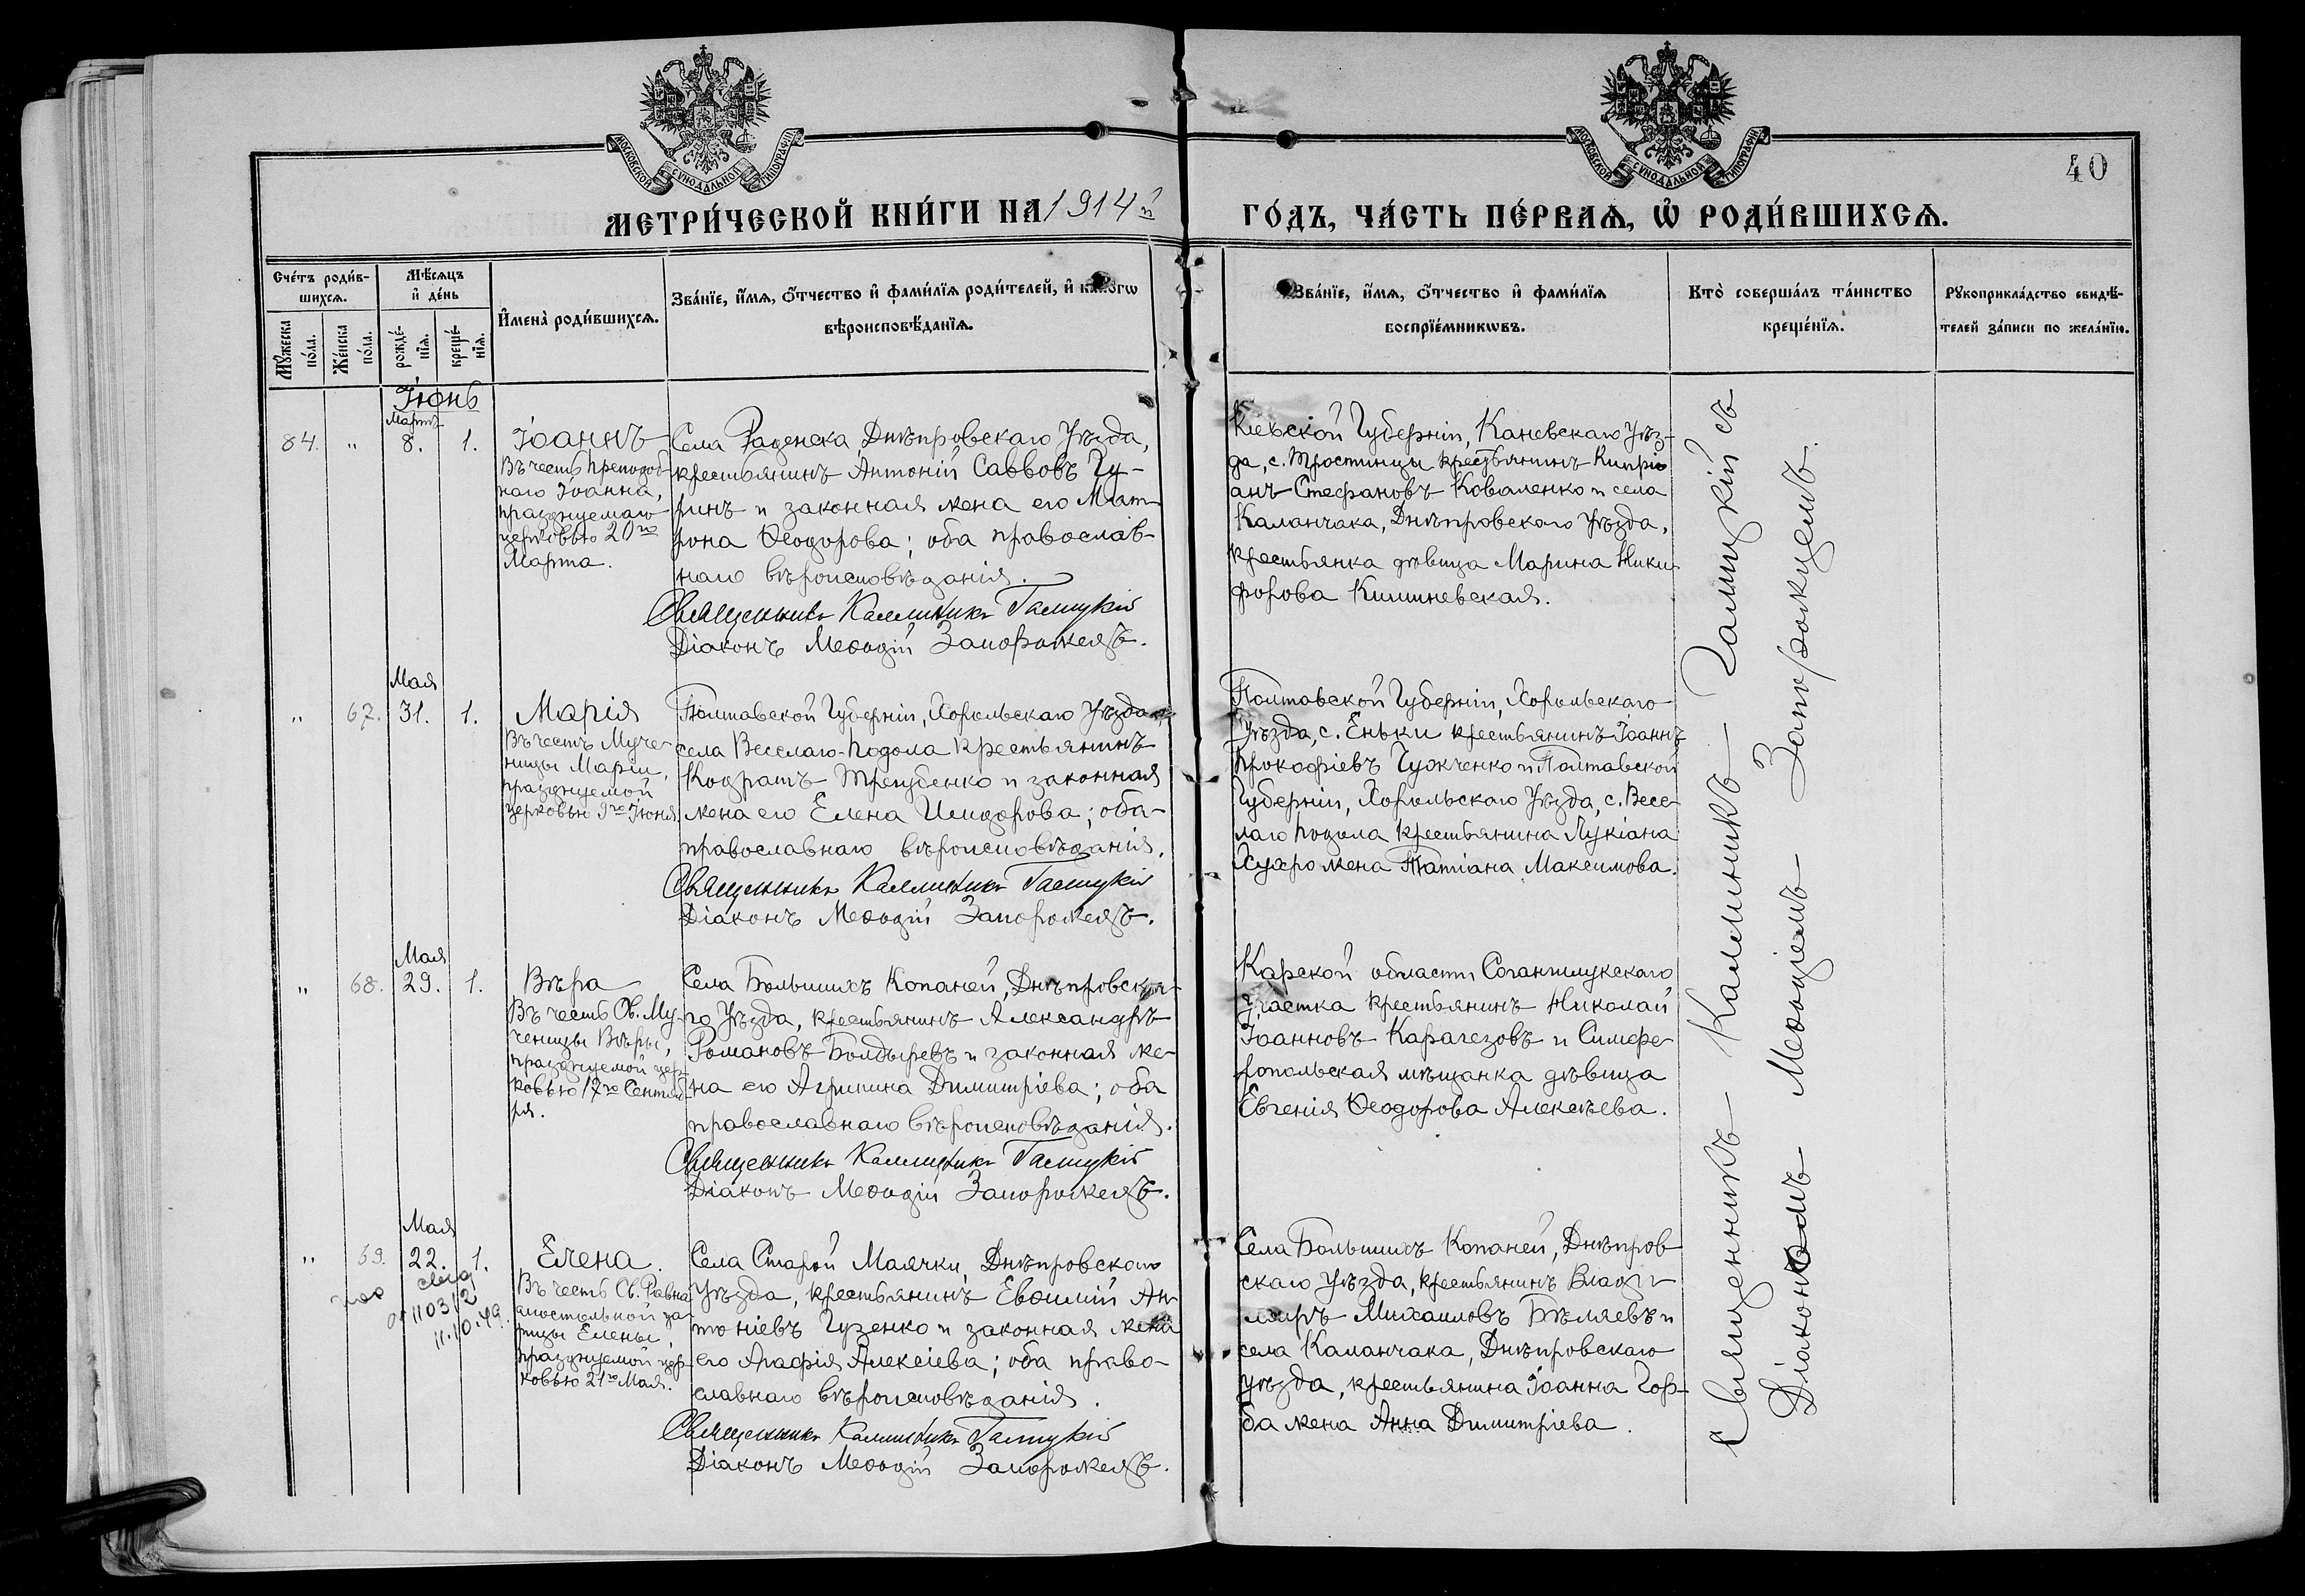 МОСКОВСКОЙ СУНОДАЛЬНОЙ ТИПОГРАФІИ
МОСКОВСКОЙ СУНОДАЛЬНОЙ ТИПОГРАФІИ
40
МЕТРИ́ЧЕСКОЙ КНИ́ГИ НА 1914й
ГО́ДЪ, ЧА́СТЬ ПЕ́РВАѦ, Ѡ҆ РОДИ́ВШИХСѦ.
Сче́тъ роди́в-
шихсѧ.
Мꙋ́жеска
по́ла.
Же́нска
по́ла.
Мѣ́сѧцъ
и҆ де́нь
рожде́-
нїѧ.
креще́-
нїѧ.
И҆мена̀ роди́вшихсѧ.
Зва́нїе, и҆́мѧ, ѻ҆́тчество и҆ фами́лїѧ роди́телей, и҆ како́гѡ
вѣроисповѣ́данїѧ.
Зва́нїе, и҆́мѧ, ѻ҆́тчество и҆ фами́лїѧ
воспрїе́мникѡвъ.
Кто̀ соверша́лъ та́инство
креще́нїѧ.
Рꙋкоприкла́дство свидѣ́-
телей за́писи по жела́нїю.
Іюнь
Марта
84. " 8. 1.
Іоаннъ
Въ честь преподоб-
наго Іоанна,
празднуемаго
церковью 20го
Марта.
Села Раденска, Днѣпровскаго Уѣзда,
крестьянинъ Антоній Саввовъ Гу-
ринъ и законная жена его Мат-
рона Ѳеодорова; оба православ-
наго вѣроисповѣданія.
Священникъ Каллиникъ Галицкій
Діаконъ Меѳодій Запорожецъ.
Кіевской Губерніи, Каневскаго Уѣз-
да, с. Тростинцы крестьянинъ Кипрі-
анъ Стефановъ Коваленко и села
Каланчака, Днѣпровскаго Уѣзда,
крестьянка дѣвица Марина Ники-
форова Кишиневская.
Мая
" 67. 31. 1.
Марія
Въ честь Муче-
ницы Маріи,
празднуемой
церковью 9го Іюня.
Полтавской Губерніи, Хорольскаго Уѣзда,
села Веселаго-Подола крестьянинъ
Кодратъ Трепубенко и законная
жена его Елена Исидорова; оба
православнаго вѣроисповѣданія.
Священникъ Каллиникъ Галицкій
Діаконъ Меѳодій Запорожецъ.
Полтавской Губерніи, Хорольскаго
Уѣзда, с. Еньки крестьянинъ Іоаннъ
Прокофіевъ Гужченко и Полтавской
Губерніи, Хорольскаго Уѣзда, с. Весе-
лаго Подола крестьянина Лукіана
Хухро жена Татіана Максимова.
Мая
" 68. 29. 1.
Вѣра
Въ честь Св. Му-
ченицы Вѣры,
празднуемой цер-
ковью 17го Сентяб-
ря.
Села Большихъ Копаней, Днѣпровска-
го Уѣзда, крестьянинъ Александръ
Романовъ Болдыревъ и законная же-
на его Агрипина Димитріева; оба
православнаго вѣроисповѣданія.
Священникъ Каллиникъ Галицкій
Діаконъ Меѳодій Запорожецъ.
Карской области Соганлукскаго
участка крестьянинъ Николай
Іоанновъ Карагезовъ и Симфе-
ропольская мѣщанка дѣвица
Евгенія Ѳеодорова Алексѣева.
Мая
" 69. 22. 1.
от 11.10.49.
Елена.
Въ честь Св. Равно-
апостольной ца-
рицы Елены,
празднуемой цер-
ковью 21го Мая.
Села Старой Маячки, Днѣпровскаго
Уѣзда, крестьянинъ Евѳимій Ан-
тоніевъ Гузенко и законная жена
его Агафія Алексіева; оба право-
славнаго вѣроисповѣданія.
Священникъ Каллиникъ Галицкій
Діаконъ Меѳодій Запорожецъ.
Села Большихъ Копаней, Днѣпров-
скаго Уѣзда, крестьянинъ Влади-
миръ Михаиловъ Бѣляевъ и
села Каланчака, Днѣпровскаго
уѣзда, крестьянина Іоанна Гор-
ба жена Анна Димитріева.
Священникъ Каллиникъ Галицкій съ
Діакономъ Меѳодіемъ Запорожцемъ.